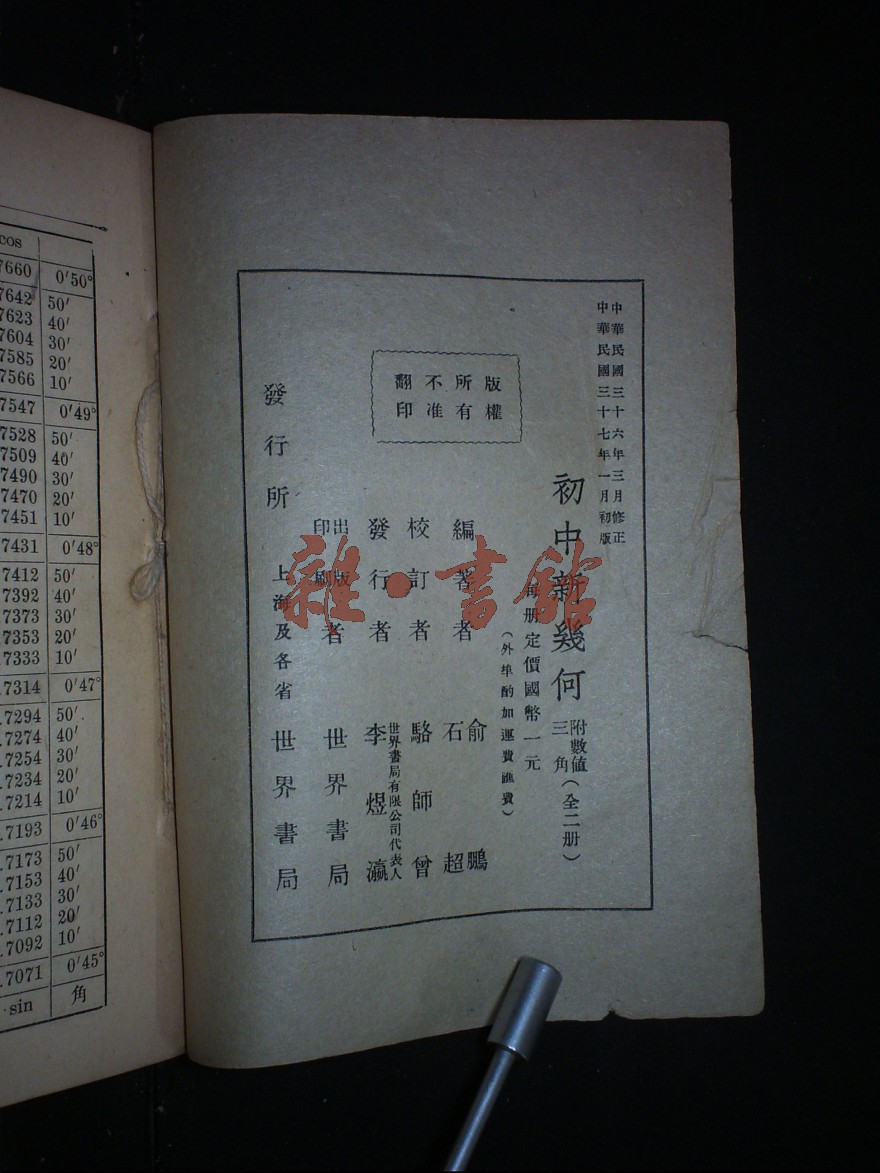 中華民國三十六年三月修正
中華民國三十七年一月初版
初中新幾何 附數值三角（全二册）
每册定價國幣一元
（外埠酌加運費匯費）
版權所有
不准翻印
編著者 俞鵬 石超
校訂者 駱師曾
發行者 世界書局有限公司代表人 李煜瀛
出版印刷者 世界書局
發行所 上海及各省 世界書局
雜·書館
cos
7660 0′50°
7642 50′
7623 40′
7604 30′
7585 20′
7566 10′
7547 0′49°
7528 50′
7509 40′
7490 30′
7470 20′
7451 10′
.7431 0′48°
.7412 50′
.7392 40′
.7373 30′
.7353 20′
.7333 10′
.7314 0′47°
.7294 50′
.7274 40′
.7254 30′
.7234 20′
.7214 10′
.7193 0′46°
.7173 50′
.7153 40′
.7133 30′
.7112 20′
.7092 10′
.7071 0′45°
sin 角